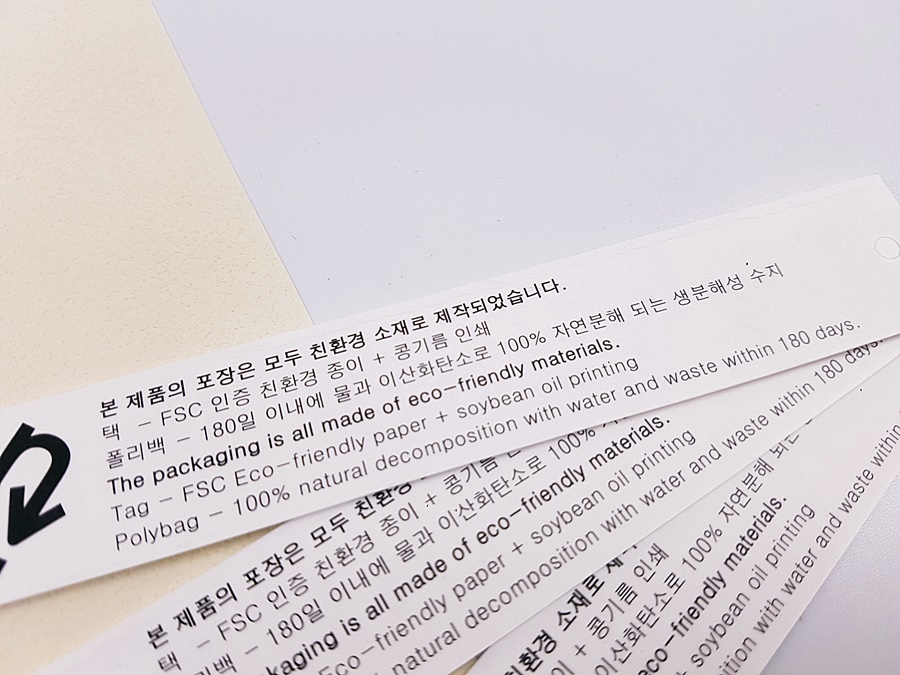 본 제품의 포장은 모두 친환경 소재로 제작되었습니다.
택 - FSC 인증 친환경 종이 + 콩기름 인쇄
폴리백 - 180일 이내에 물과 이산화탄소로 100% 자연분해 되는 생분해성 수지
The packaging is all made of eco-friendly materials.
Tag - FSC Eco-friendly paper + soybean oil printing
Polybag - 100% natural decomposition with water and waste within 180 days.
본 제품의 포장은 모두 친환경
택 - FSC 인증 친환경 종이 + 콩기름
리백 - 180일 이내에 물과 이산화탄소로 100%
kaging is all made of eco-friendly materials.
Eco-friendly paper + soybean oil printing
natural decomposition with water and waste within 180 days.
친환경 소재로
이 + 콩기름 인쇄
이산화탄소로 100% 자연분해 되는
eco-friendly materials.
soybean oil printing
ition with water and waste within